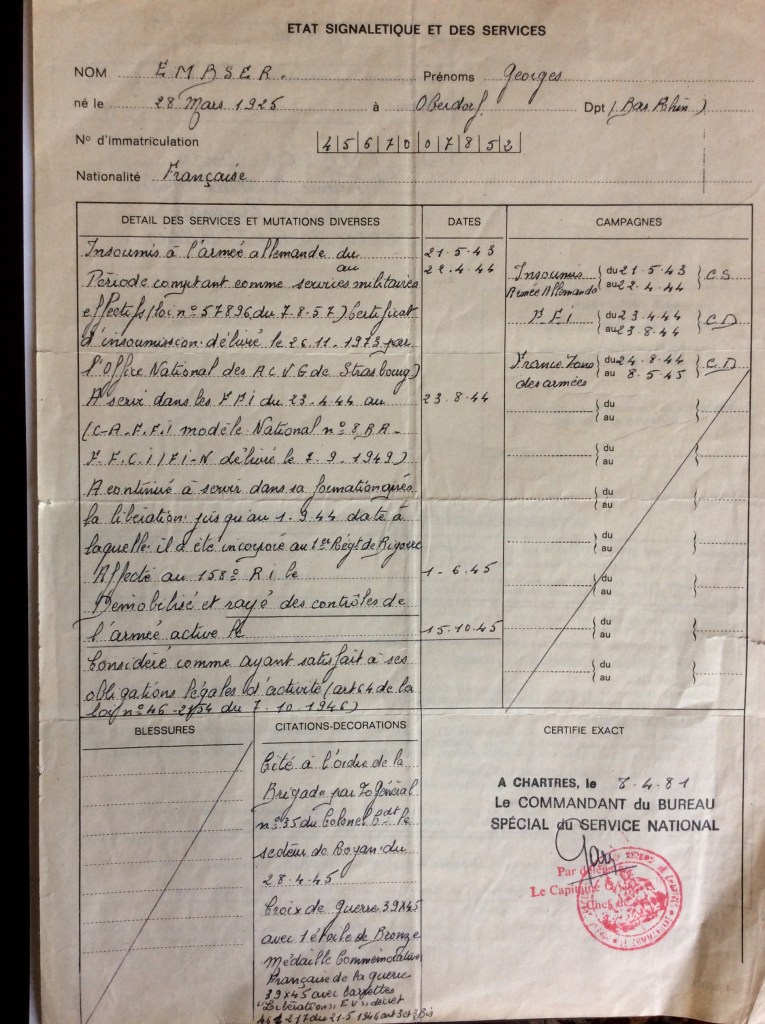 ETAT SIGNALETIQUE ET DES SERVICES
NOM EMBSER. Prénoms Georges
né le 28 Mars 1925 à Oberdorf Dpt (Bas Rhin)
N° d'immatriculation 4 5 6 7 0 0 7 8 5 2
Nationalité Française
DETAIL DES SERVICES ET MUTATIONS DIVERSES DATES CAMPAGNES
Insoumis à l'armée allemande du 21.5.43
au 22.4.44
Période comptant comme services militaires
effectifs (loi n° 57896 du 7.8.57) Certificat
d'insoumission délivré le 26.11.1973 par
l'Office National des A C V G de Strasbourg)
A servi dans les FFI du 23.4.44 au 23.8.44
(C-A-F.F.i modèle National n° 8, RA-
F.F.C.i/Fi-N délivré le 7.9.1949)
A continué à servir dans sa formation après
la libération jusqu'au 1.9.44 date à
laquelle il a été incorporé au 1er Régt de Bigorre
Affecté au 158° R I le 1.6.45
Démobilisé et rayé des contrôles de
l'armée active le 15.10.45
Considéré comme ayant satisfait à ses
obligations légales d'activité (art 64 de la
loi n° 46-2154 du 7.10.1946)
Insoumis du 21.5.43 C S
Armée Allemande au 22.4.44
F F i du 23.4.44 C D
au 23.8.44
France Zone du 24.8.44 C D
des armées au 8.5.45
du
au
du
au
du
au
du
au
du
au
du
au
du
au
BLESSURES
CITATIONS-DECORATIONS
Cité à l'ordre de la
Brigade par Général
n° 35 du Colonel Cdt le
secteur de Royan du
28.4.45
Croix de Guerre 39x45
avec 1 étoile de Bronze
Médaille Commémorative
Française de la guerre
39x45 avec barrettes
"Libération", EV, décret
du 21.5.1946 art 3 et 3 Bis
CERTIFIE EXACT
A CHARTRES, le 8.4.81
Le COMMANDANT du BUREAU
SPÉCIAL du SERVICE NATIONAL
Par délég
Le Capitaine
Chef de